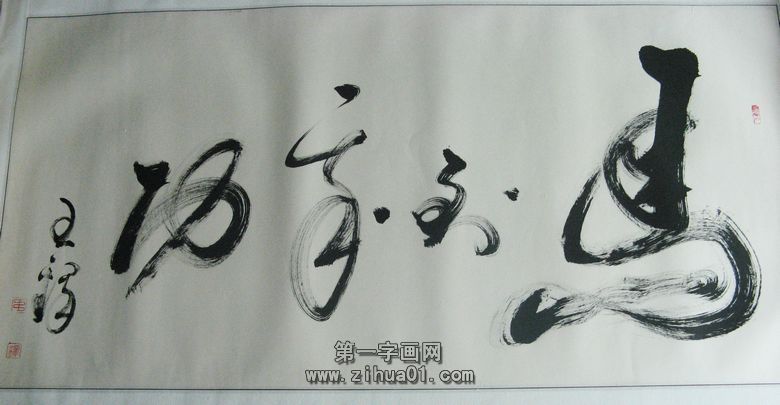 馬到成功
王
第一字画网
www.zihua01.com